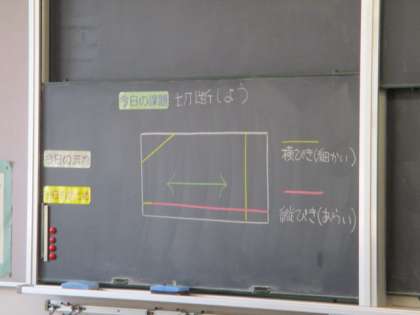 今日の課題 切断しよう
横びき(細かい)
縦びき(あらい)
今日の流れ